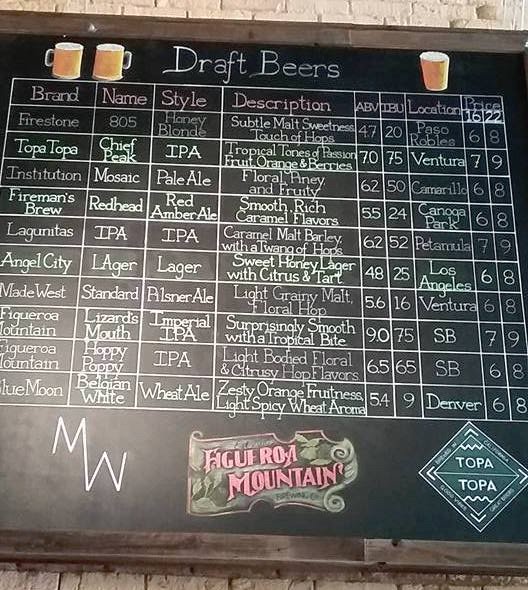 Draft Beers
Brand Name Style Description ABV IBU Location Price
16 22
Firestone 805 Honey Blonde Subtle Malt Sweetness, Touch of Hops 4.7 20 Paso Robles 6 8
Topa Topa Chief Peak IPA Tropical Tones of Passion Fruit, Orange & Berries 70 75 Ventura 7 9
Institution Mosaic Pale Ale Floral, Piney and Fruity 6.2 50 Camarillo 6 8
Fireman's Brew Redhead Red Amber Ale Smooth, Rich Caramel Flavors 55 24 Canoga Park 6 8
Lagunitas IPA IPA Caramel Malt Barley, with a Twang of Hops 6.2 52 Petamula 7 9
Angel City LAger Lager Sweet Honey Lager with Citrus & Tart 48 25 Los Angeles 6 8
Made West Standard Pilsner Ale Light Grainy Malt, Floral Hop 5.6 16 Ventura 6 8
Figueroa Mountain Lizard's Mouth Imperial IPA Surprisingly Smooth with a Tropical Bite 9.0 75 SB 7 9
Figueroa Mountain Hoppy Poppy IPA Light Bodied Floral & Citrusy Hop Flavors 65 65 SB 6 8
Blue Moon Belgian White Wheat Ale Zesty Orange Fruitness, Light Spicy Wheat Aroma 5.4 9 Denver 6 8
MW
FIGUEROA
MOUNTAIN
BREWING CO
TOPA
TOPA